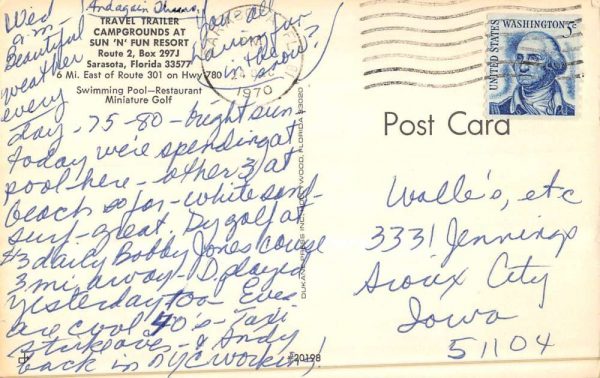 And again Thurs,
Wed
a.m.
Beautiful
weather
every
day - 75-80 - bright sun
today we're spending at
pool here - other 3 at
beach so far - white sand
surf - great. Dy golf at
#3 daily Bobby Jones course
3 mi. away - D played
yesterday too - Eves
are cool 40's - Taxi
strike over - & Andy
back in NYC working!
you all
having fun
in the
snow?
TRAVEL TRAILER
CAMPGROUNDS AT
SUN 'N' FUN RESORT
Route 2, Box 297J
Sarasota, Florida 33577
6 Mi. East of Route 301 on Hwy 780
Swimming Pool—Restaurant
Miniature Golf
1970
HOLLYWOOD, FLORIDA 33020
20198
UNITED STATES
WASHINGTON 5c
Post Card
Walle's, etc
3331 Jennings
Sioux City
Iowa
51104